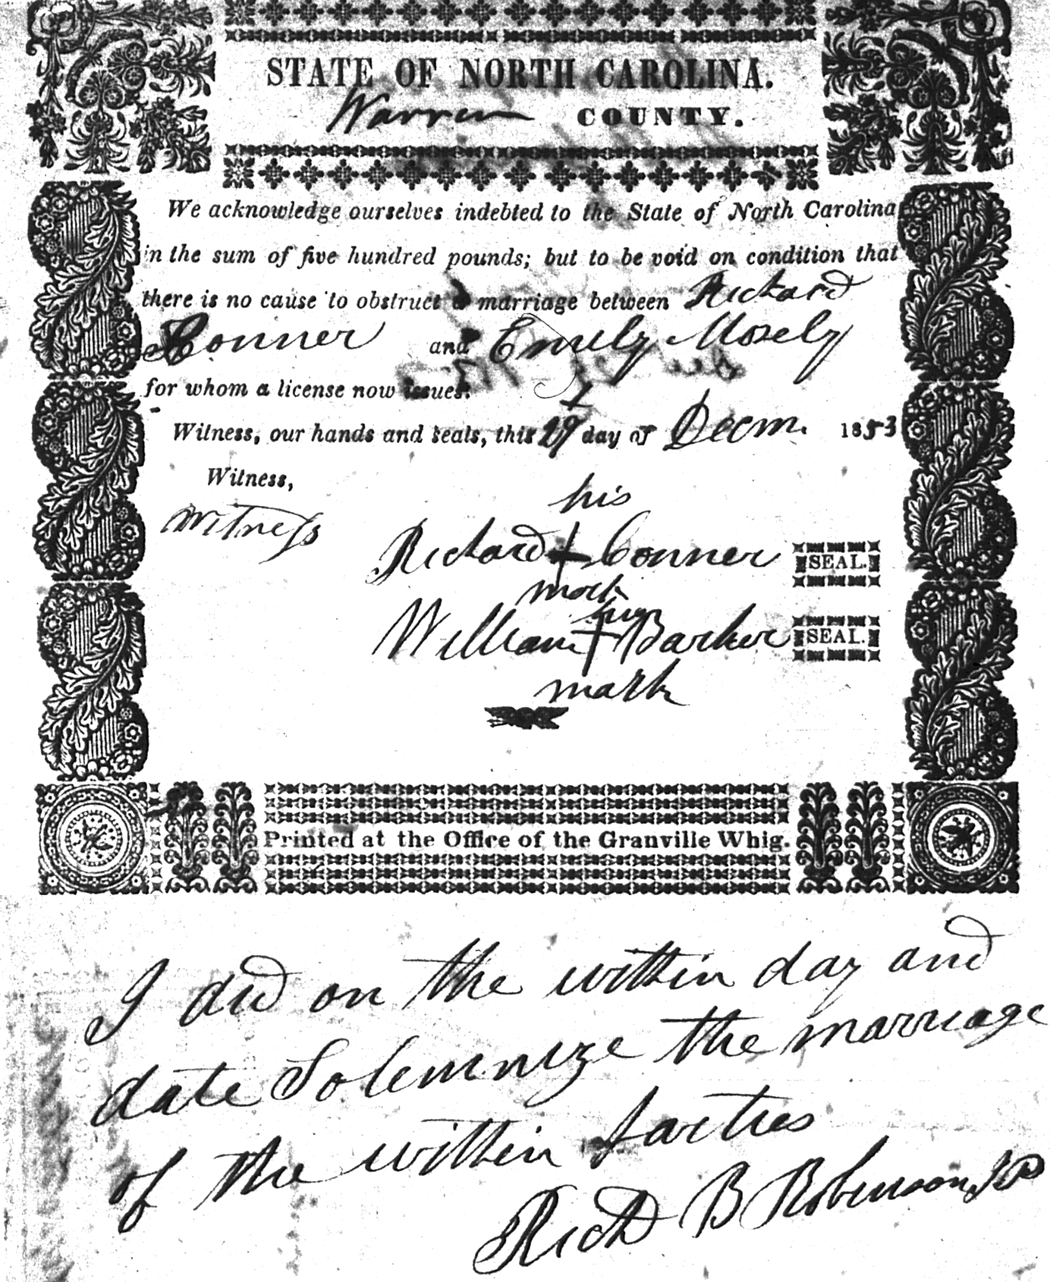 STATE OF NORTH CAROLINA.
Warren COUNTY.
We acknowledge ourselves indebted to the State of North Carolina
in the sum of five hundred pounds; but to be void on condition that
there is no cause to obstruct a marriage between Richard
Conner and Emely Mosely
for whom a license now issues.
Witness, our hands and seals, this 29 day of Decm. 1853
Witness,
witness
his
Richard + Conner SEAL.
mark
his
William + Barker SEAL.
mark
Printed at the Office of the Granville Whig.
I did on the within day and
date Solemnize the marriage
of the within parties
Richd B Robinson, JP